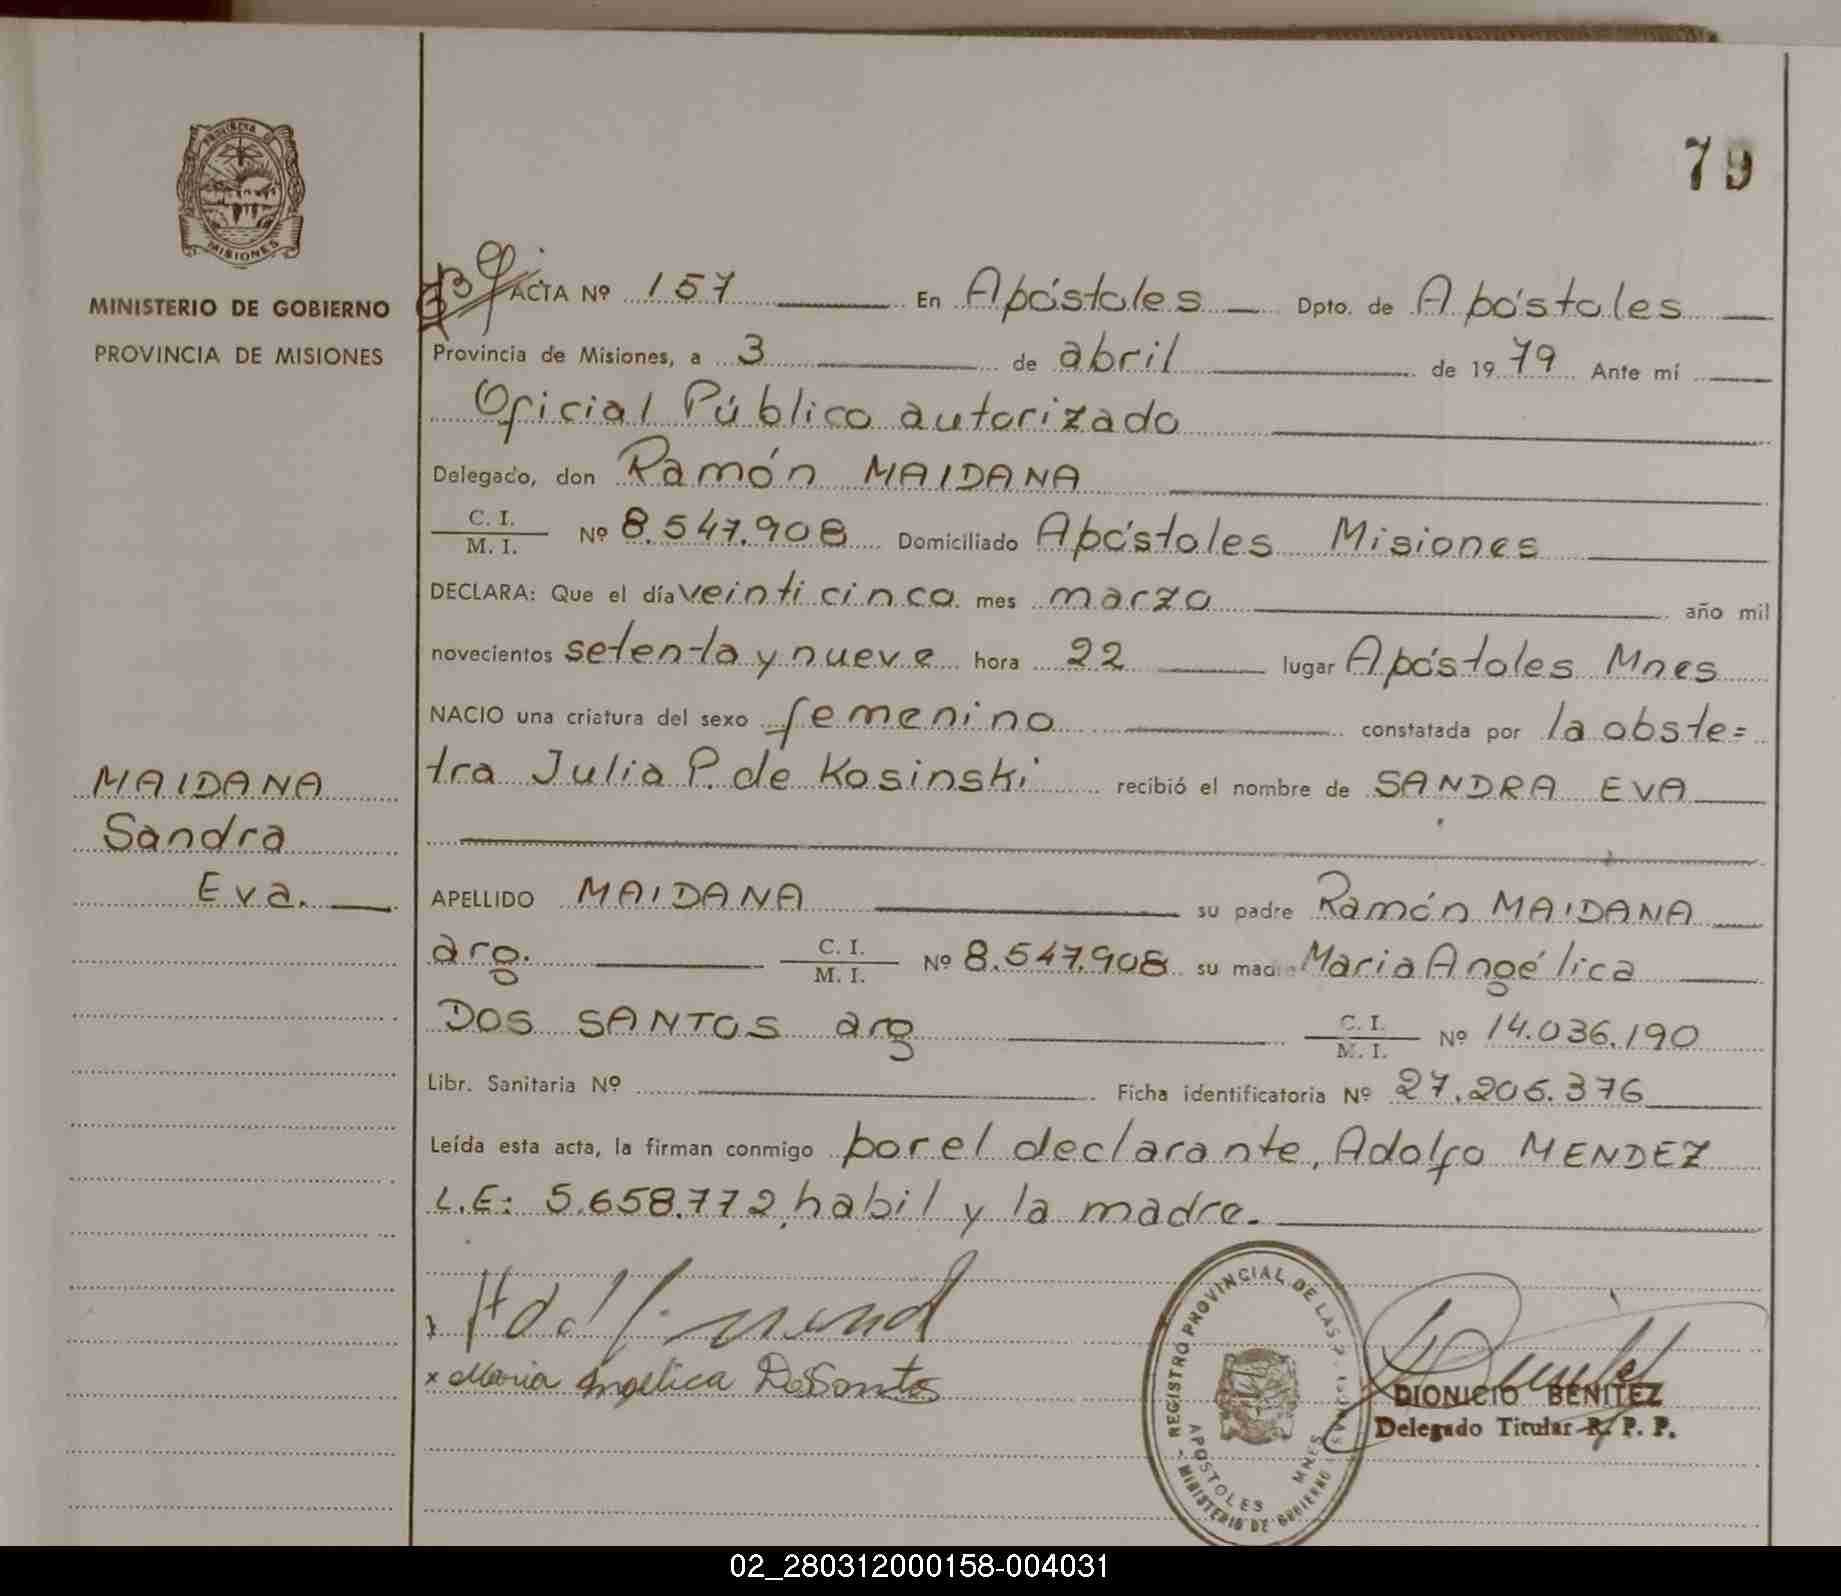 79
PROVINCIA DE
MISIONES
MINISTERIO DE GOBIERNO
PROVINCIA DE MISIONES
ACTA Nº 157 En Apóstoles Dpto. de Apóstoles
Provincia de Misiones, a 3 de abril de 1979 Ante mí
Oficial Público autorizado
Delegado, don Ramón MAIDANA
C. I.
M. I. Nº 8.547.908 Domiciliado Apóstoles Misiones
DECLARA: Que el día veinticinco mes marzo año mil
novecientos setenta y nueve hora 22 lugar Apóstoles Mnes
NACIO una criatura del sexo femenino constatada por la obste=
tra Julia P. de Kosinski recibió el nombre de SANDRA EVA
MAIDANA
Sandra
Eva.
APELLIDO MAIDANA su padre Ramón MAIDANA
arg. C. I.
M. I. Nº 8.547.908 su madre Maria Angélica
DOS SANTOS arg C. I.
M. I. Nº 14.036.190
Libr. Sanitaria Nº Ficha identificatoria Nº 27.205.376
Leída esta acta, la firman conmigo por el declarante, Adolfo MENDEZ
L.E: 5.658.772, habil y la madre.
x Maria Angelica DoSantos
REGISTRO PROVINCIAL DE LAS
APOSTOLES MNES
MINISTERIO DE GOBIERNO
DIONICIO BENITEZ
Delegado Titular R. P. P.
02_280312000158-004031